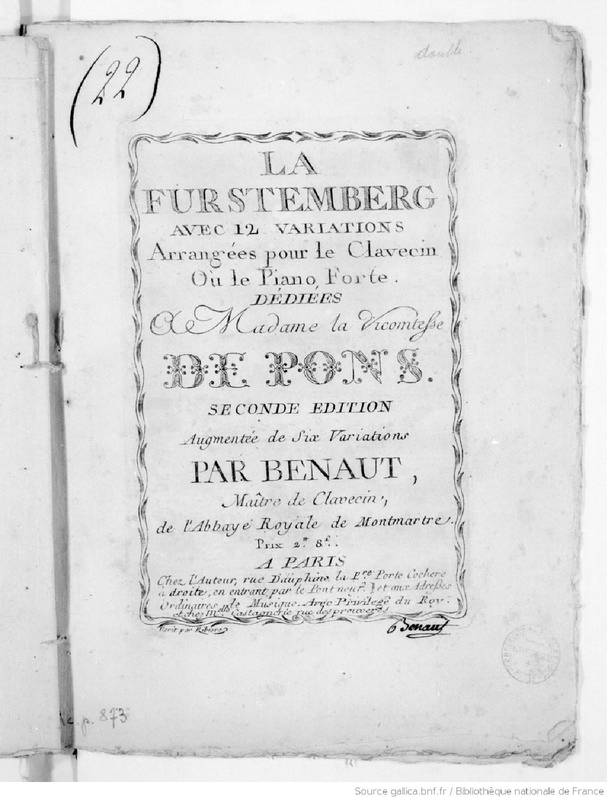 (22)
double.
LA
FURSTEMBERG
AVEC 12 VARIATIONS
Arrangées pour le Clavecin
Ou le Piano Forte.
DÉDIÉES
A Madame la Vicomtesse
DE PONS.
SECONDE EDITION
Augmentée de Six Variations
PAR BENAUT,
Maître de Clavecin,
de l'Abbaye Royale de Montmartre.
Prix 2.tt 8.s
A PARIS
Chez l'Auteur, rue Dauphine la P.re Porte Cochere
à droite, en entrant par le Pont neuf. et aux Adresses
Ordinaires de Musique. Avec Privilege du Roy.
et chez M.elle Castagnerie rue des prouveres
Ecrit par Ribiere
Benaut
p. 873
Source gallica.bnf.fr / Bibliothèque nationale de France